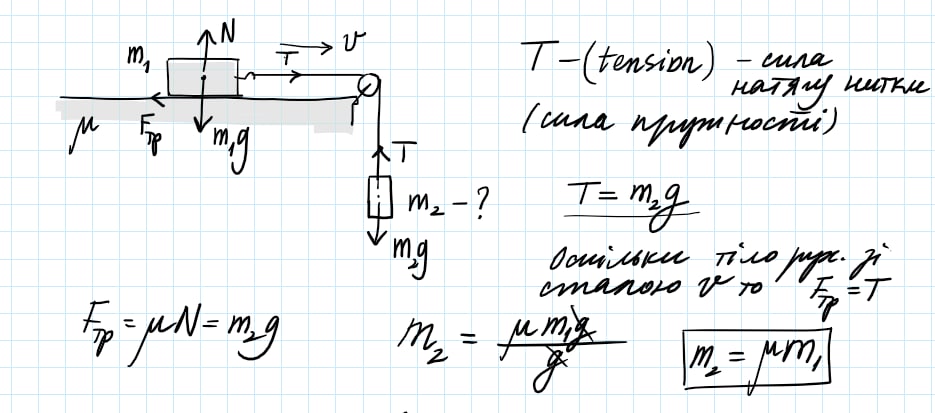 N
m₁
T
v
μ
Fтр
m₁g
T
m₂ - ?
m₂g
T - (tension) - сила
натягу нитки
(сила пружності)
T = m₂g
Оскільки тіло рух. зі
сталою v то Fтр = T
Fтр = μN = m₂g
m₂ = μm₁g / g
m₂ = μm₁